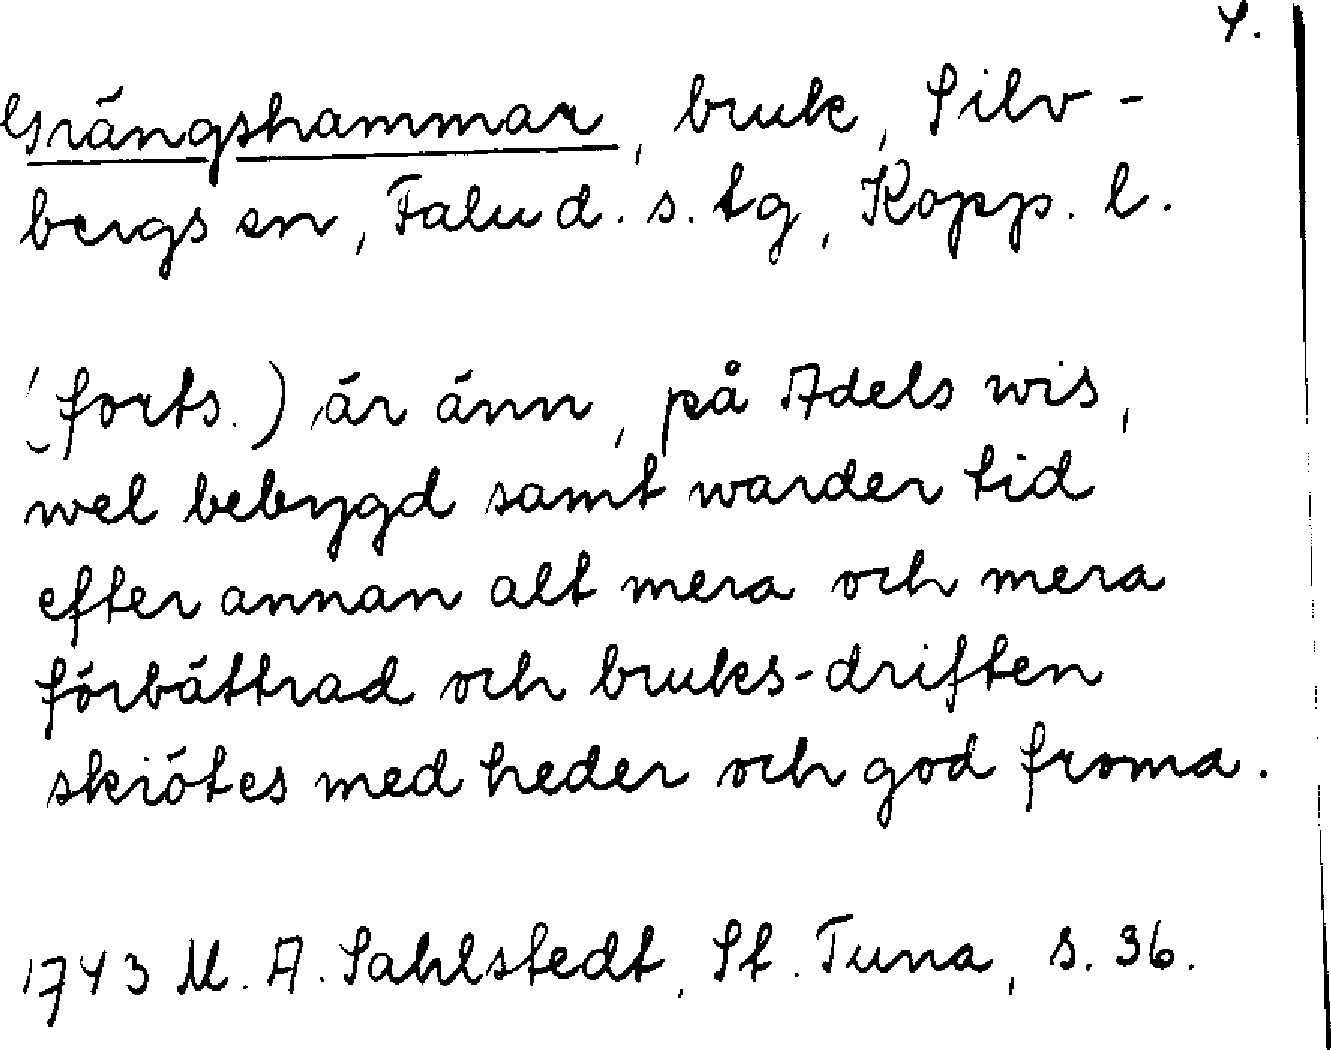 4.
Grängshammar, bruk, Silv-
bergs sn, Falu d. s. tg, Kopp. l.
(forts.) är änn, på Adels wis,
wel bebygd samt warder tid
efter annan alt mera och mera
förbättrad och bruks-driften
skiötes med heder och god froma.
1743 M. A. Sahlstedt, St. Tuna, s. 36.